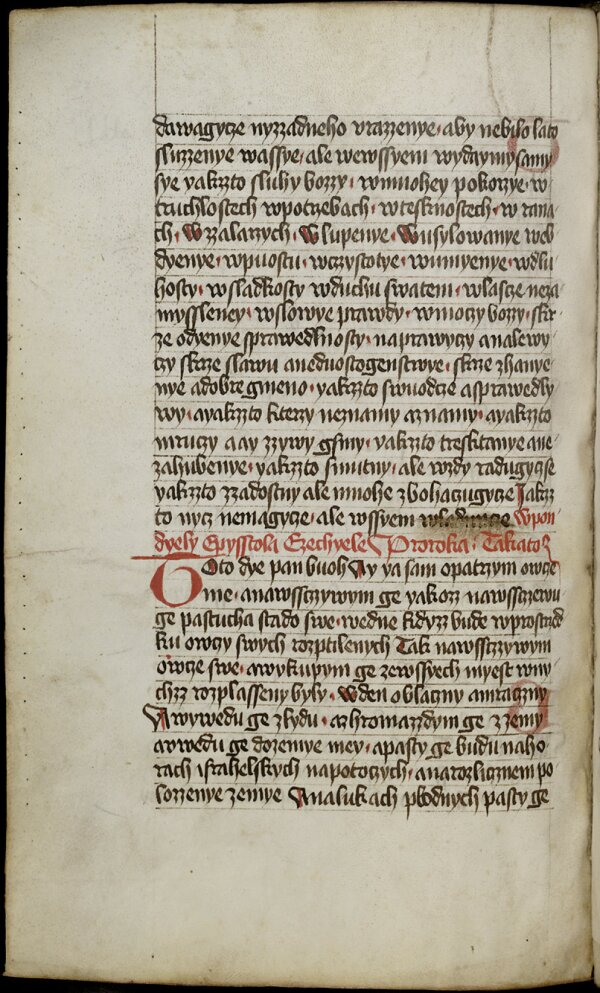 dawagycze nyzzadneho vrazzenye · aby nebilo lato
sluzzenye wassye · ale wewssyem wydaymy samy
sye yakzto sluhy bozzy · wmnohey pokorzye · w
truchlostech wpotrzebach · wtesknostech · w rana
ch · W zalarzych · W lupenye · W usylowanye web
dyenye · wpuostu · wczystotye · wumyenye · wdlu
hosty · wsladkosty wduchu swatem · wlascze neza
myssleney · wslowye prawdy · wmoczy bozzy · skr
ze odyenye sprawedlnosty · naprawyczy analewy
czy skrze slawu aneduostogenstwye · skrze zhanye
nye adobre gmeno · yakzto swuodcze asprawedly
wy · ayakzto kterzy neznamy aznamy · ayakzto
mruczy a ay zzywy gsmy · yakzto tresktanye ane
zahubenye · yakzto smutny · ale wzdy radugycze
yakzto zzadostny ale mnohe zbohaczugycze Jakz
to nycz nemagycze · ale wssyem wladnucze Wpon
dyely Epysstola Ezechyele Proroka · Takato
Toto dye pan buoh Ay ya sam opatrzym owcze
me · anawssczywym ge yakozz nawssczewu
ge pastucha stado swe · wedne kdyzz bude wprostrzed
ku owczy swych rozptilenych Tak nawssczywym
owcze swe · awykupym ge zewssyech myest wny
chzz rozplasseny byly · Wden oblaczny amraczny
Awywedu ge zlydu · azhromazzdym ge zzemy
avwedu ge dozemye mey · apasty ge budu naho
rach israhelskych napotoczych · anarozlicznem po
lozzenye zemye Analukach plodnych pasty ge